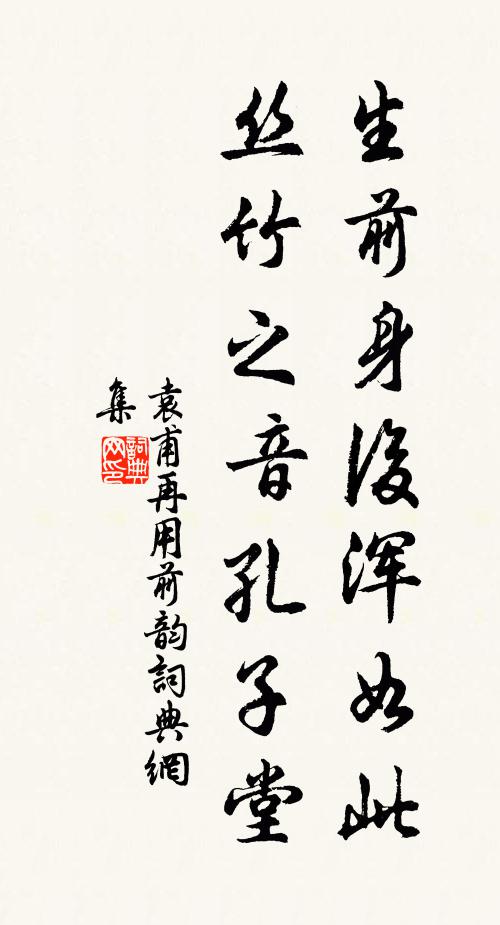 生前身後浑如此
丝竹之音孔子堂
袁甫再用前韵詞典網
集
詞典
网印